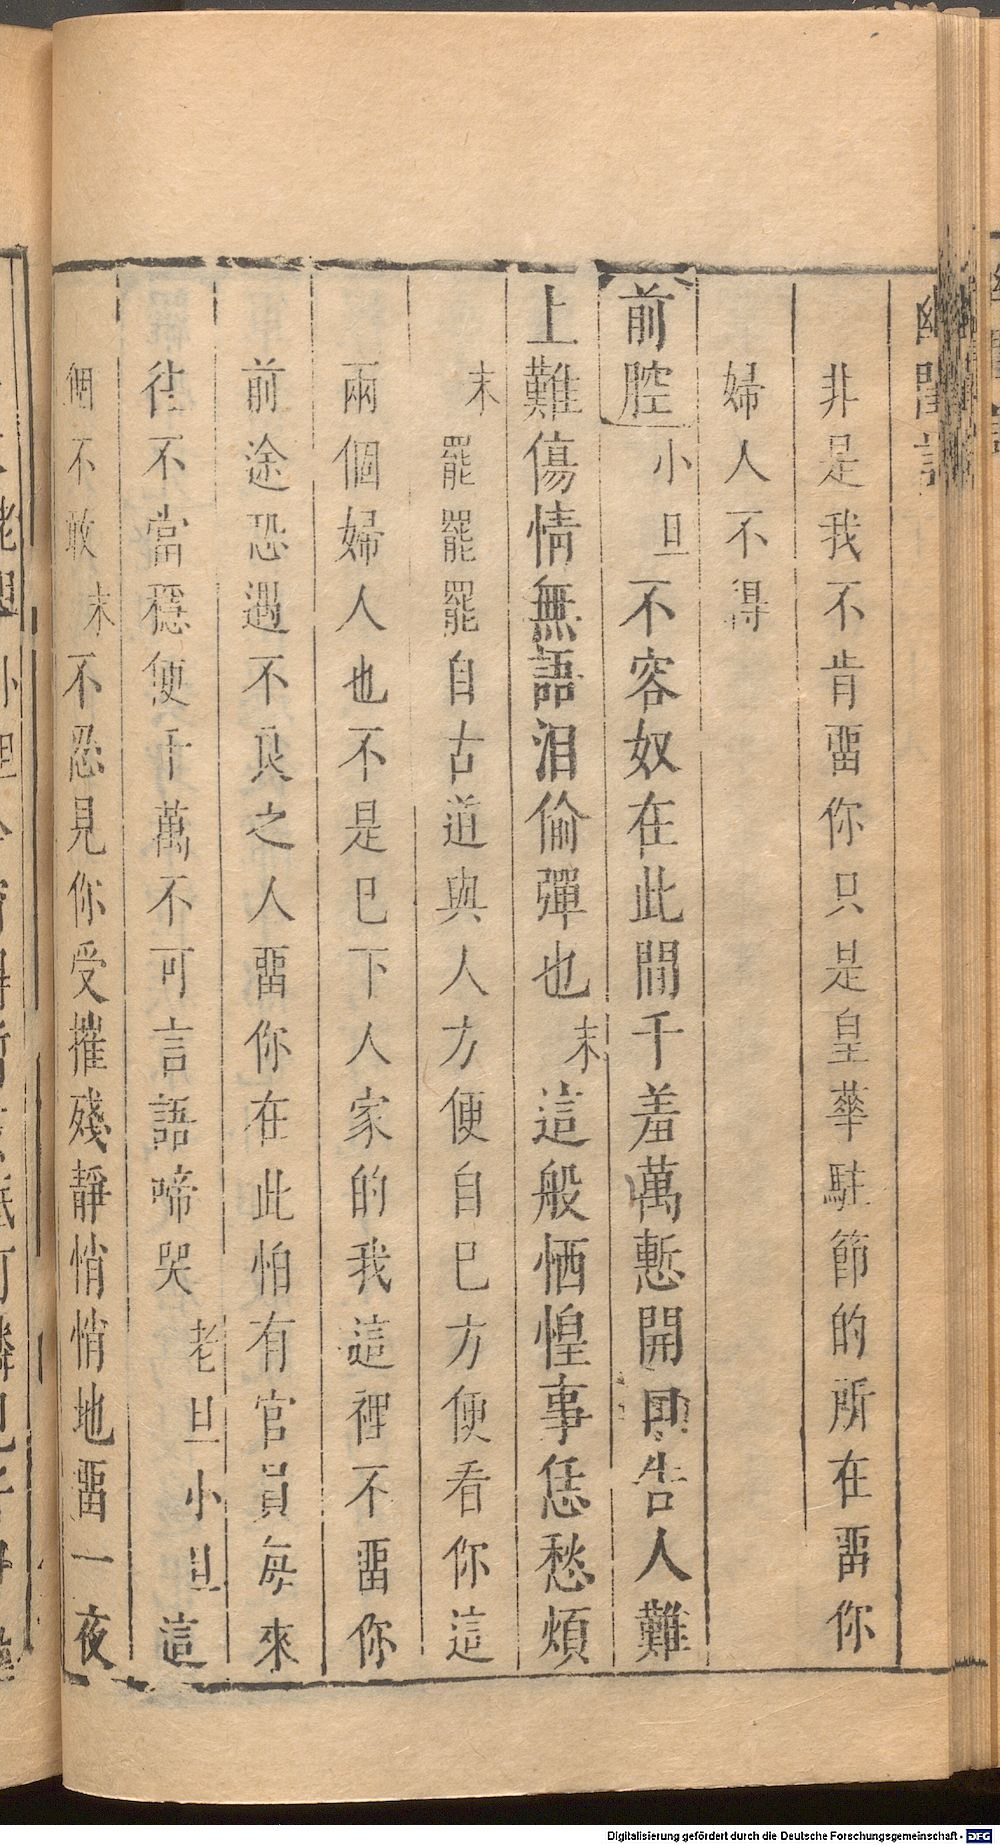 幽閨記
非是我不肯畱你只是皇華駐節的所在畱你
婦人不得
前腔小旦不容奴在此間千羞萬慙開口告人難
上難傷情無語泪偷彈也末這般恓惶事恁愁煩
末
罷罷罷自古道與人方便自己方便看你這
兩個婦人也不是已下人家的我這裡不畱你
前途恐遇不良之人畱你在此怕有官員每來
往不當穩便千萬不可言語啼哭老旦小旦這
個不敢末不忍見你受摧殘靜悄悄地畱一夜
Digitalisierung gefördert durch die Deutsche Forschungsgemeinschaft - DFG